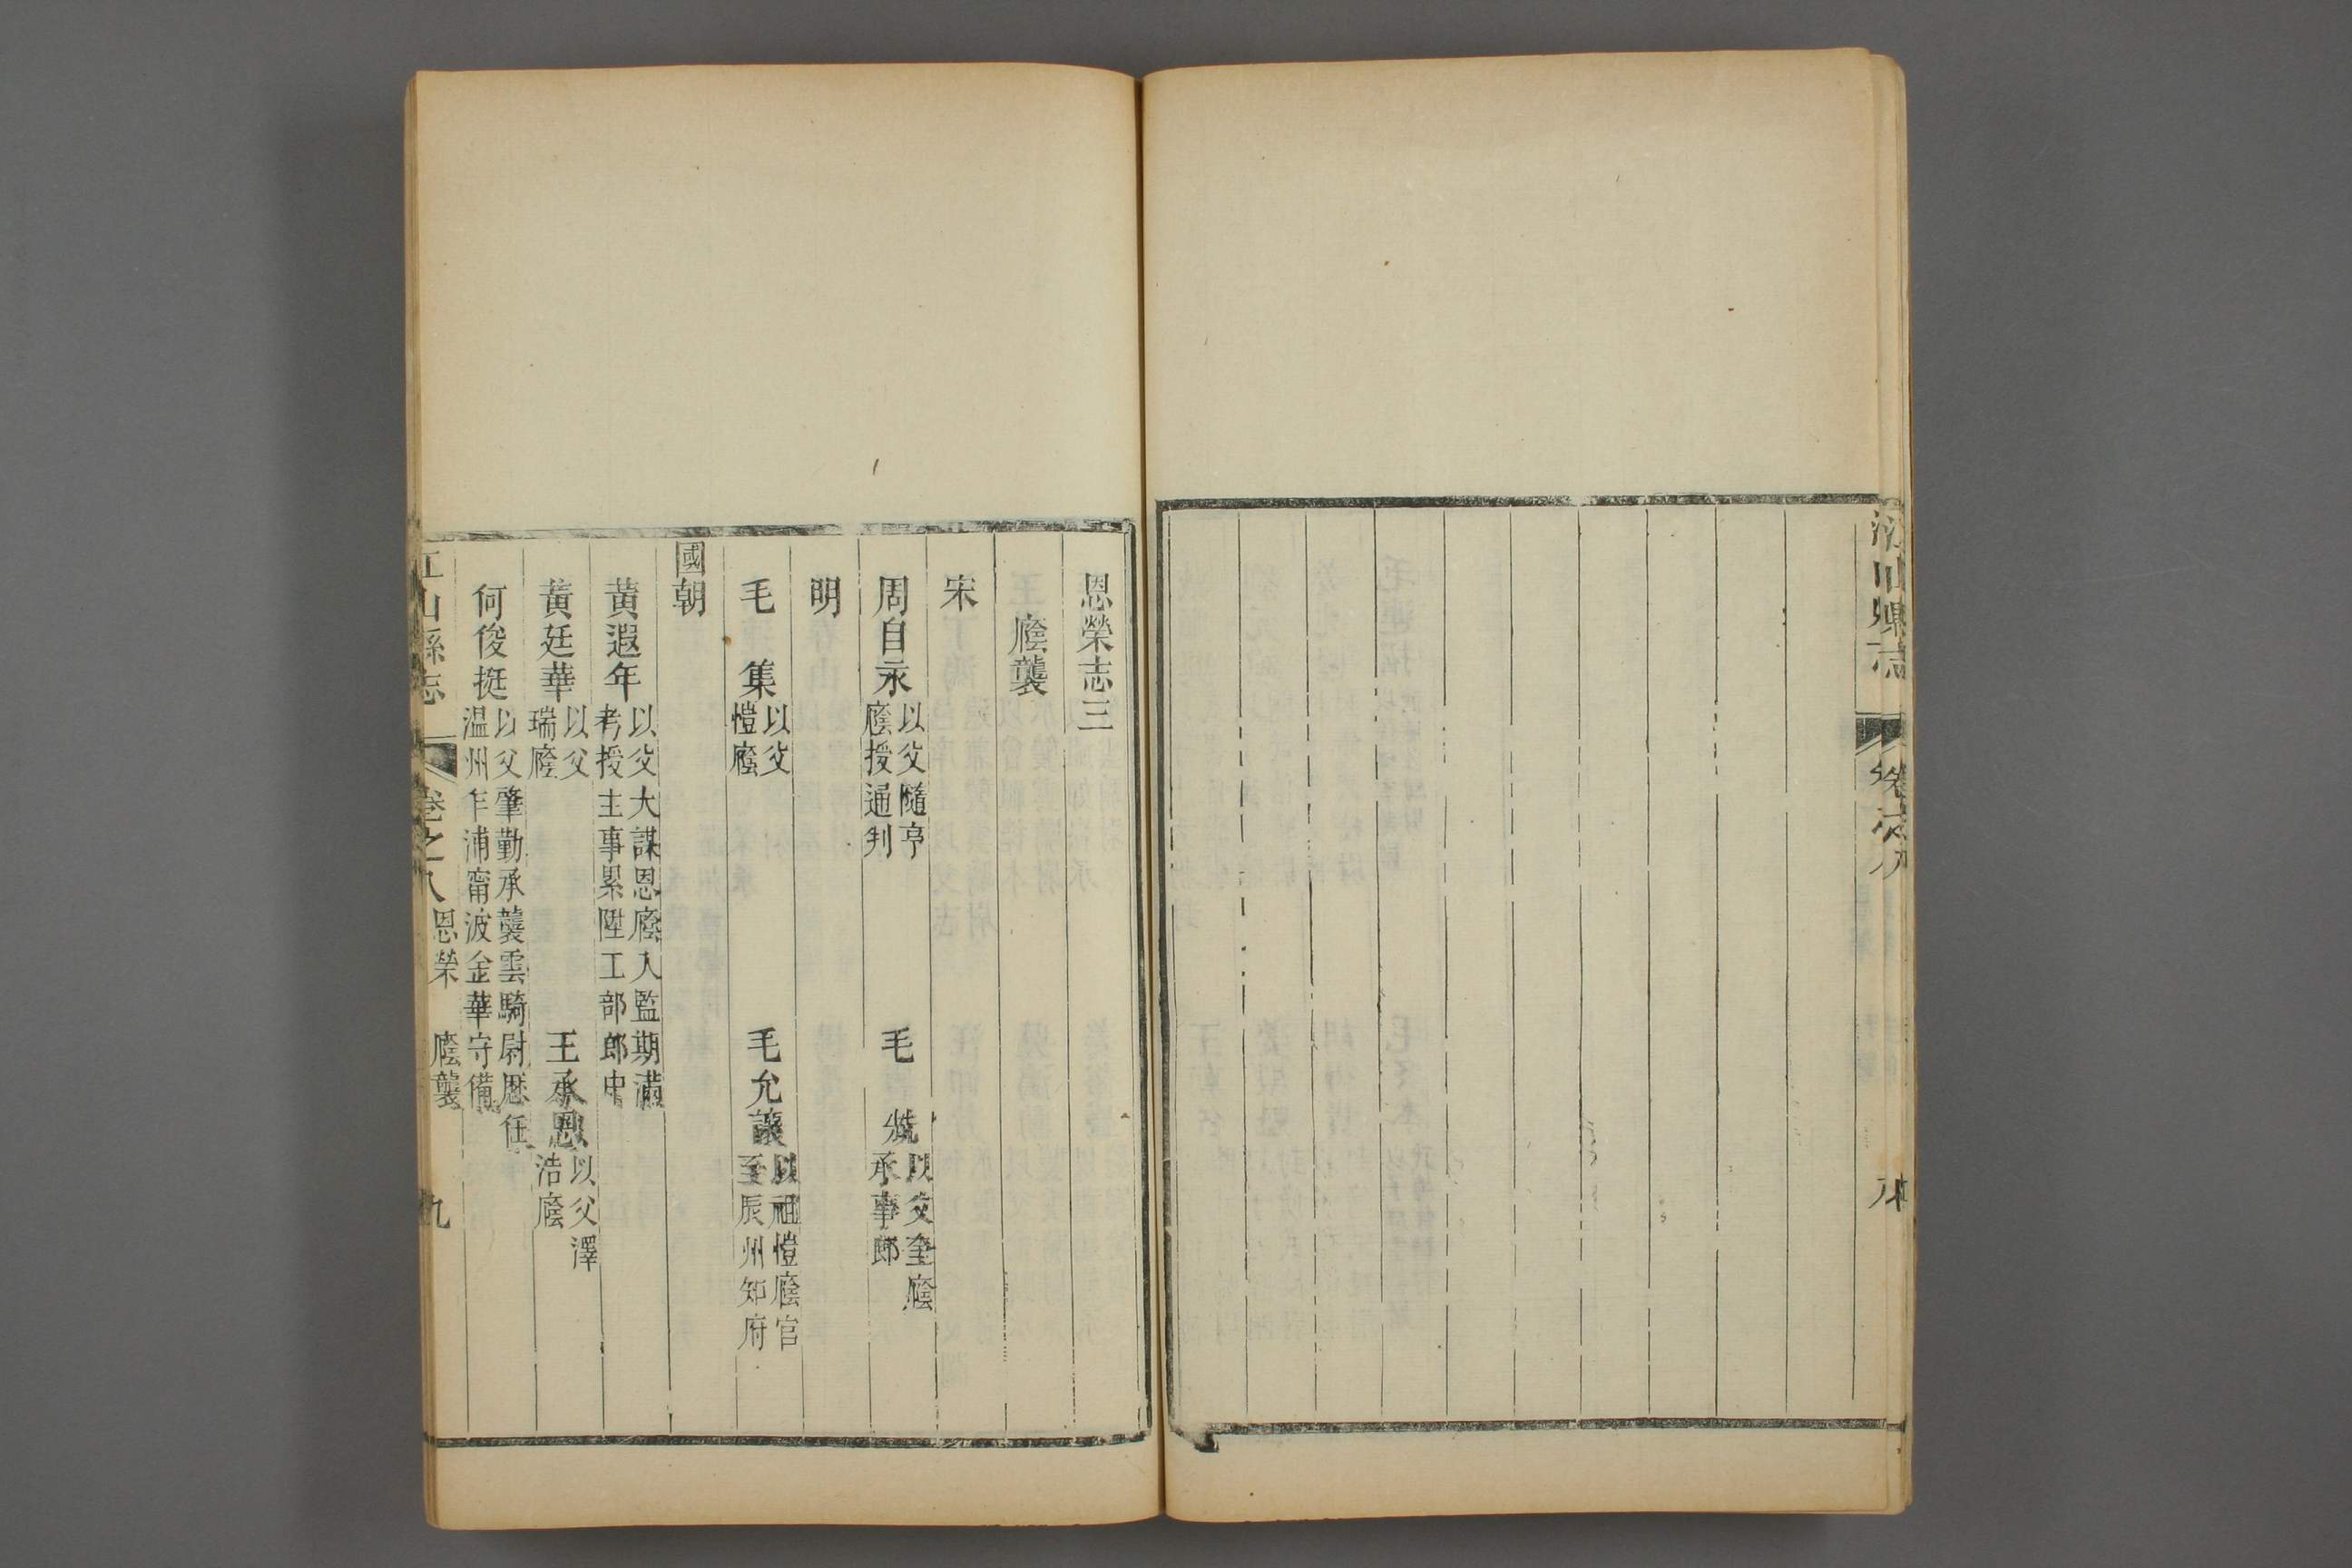 江山縣志
恩榮志三
廕襲
宋
周自永 以父隨亨廕授通判 毛 以父奎廕承事郎
明
毛 集 以父愷廕 毛允讓 以祖愷廕官至辰州知府
國朝
黃遐年 以父大謀恩廕入監期滿考授主事累陞工部郎中
黃廷華 以父瑞廕 王承恩 以父澤浩廕
何俊挺 以父肇勤承襲雲騎尉歷任温州乍浦甯波金華守備
江山縣志 卷之八 恩榮 廕襲 九